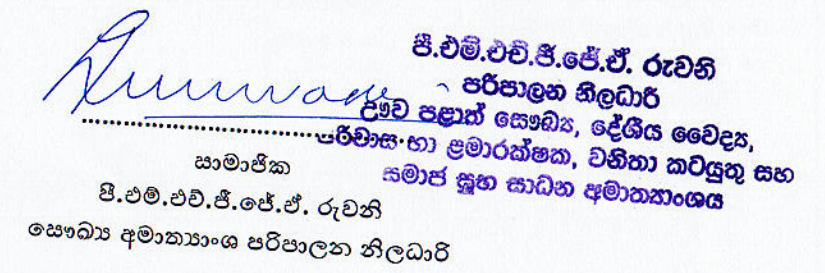 පී.එම්.එච්.ජී.ජේ.ඒ. රුවනි
පරිපාලන නිලධාරී
ඌව පළාත් සෞඛ්‍ය, දේශීය වෛද්‍ය,
පරිවාස භා ළමාරක්ෂක, වනිතා කටයුතු සහ
සමාජ ශුභ සාධන අමාත්‍යාංශය
සාමාජික
පී.එම්.එච්.ජී.ජේ.ඒ. රුවනි
සෞඛ්‍ය අමාත්‍යාංශ පරිපාලන නිලධාරි